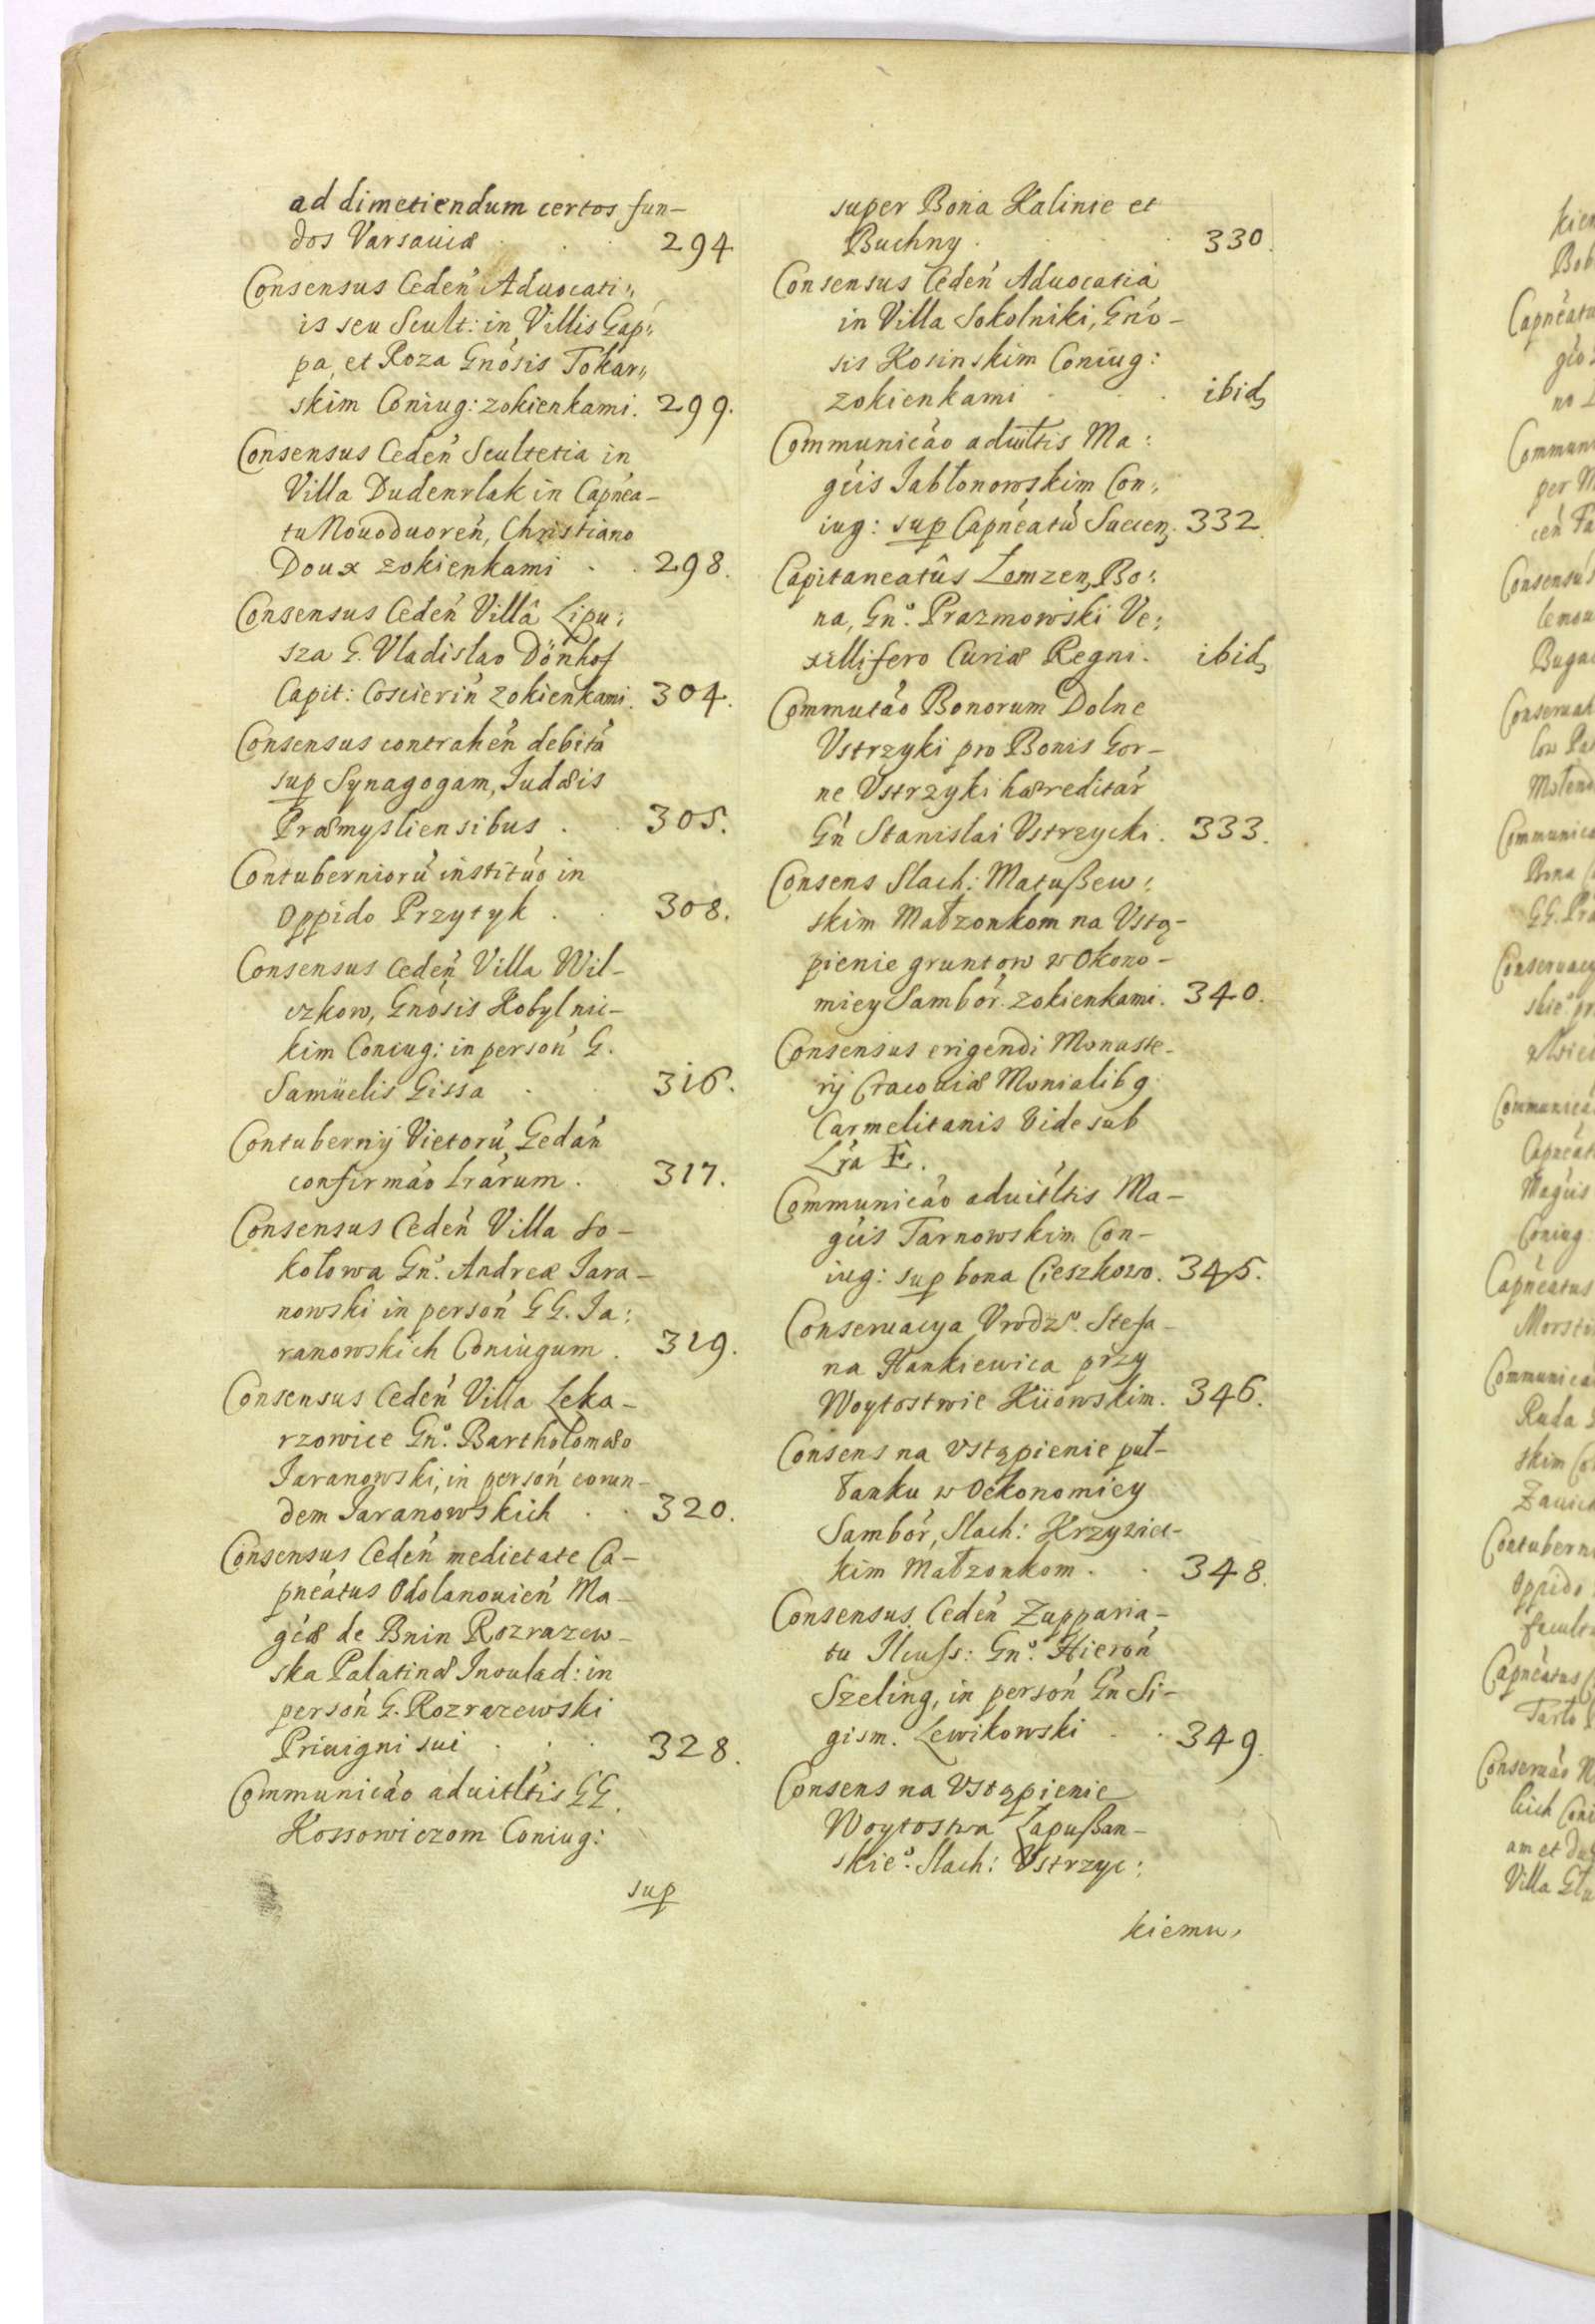 ad dimetiendum certos fun-
dos Varsaviæ . . . 294
Consensus Cedeń Aduocati„
is seu Scult: in Villis Gap„
pa, et Roza Gnósis Tokar„
skim Coniug: zokienkami. 299.
Consensus Cedeń Scultetia in
Villa Dudenrlak in Capnéa-
tu Nouoduoreń, Christiano
Doux zokienkami . . 298.
Consensus Cedeń Villâ Lipu:
sza G. Vladislao Dönhof
Capit: Coscieriń zokienkami. 304.
Consensus contraheń debitá
sup Synagogam, Iudæis
Præmysliensibus . . 305.
Contubernioru̓ institúo in
Oppido Przytyk . . 308.
Consensus Cedeń Villa Wil-
czkow, Gnósis Kobylnic-
kim Coniug: in persoń G.
Samüelis Gissa . . 316.
Contubernij Vietorú Gedań
confirmáo Lrárum . 317.
Consensus Cedeń Villa So-
kołowa Gnº. Andreæ Iara-
nowski in persoń GG. Ia:
ranowskich Coniugum . 319.
Consensus Cedeń Villa Leka-
rzowice Gnº. Bartholomæo
Iaranowski, in persoń eorun-
dem Iaranowskich . . 320.
Consensus Cedeń medietate Ca-
pnéatus Odolanouień Ma-
gćæ de Bnin Rozrazew-
ska Palatinæ Inoulad: in
persoń G. Rozrazewski
Priuigni sui . . . 328.
Communicáo aduitltis GG.
Kossowiczom Coniug:
sup
super Bona Kalinie et
Buchny . . 330.
Consensus Cedeń Aduocatiá
in Villa Sokolniki, Gnó-
sis Kosinskim Coniug:
zokienkami . . ibid
Communicáo aduitltis Ma:
gćis Jabłonowskim Con:
iug: sup Capnéatú Succen 332.
Capitaneatûs Lomzen, Bo:
na, Gnº. Prazmowski Ve:
xillifero Curiæ Regni . ibid
Commutáo Bonorum Dolne
Vstrzyki pro Bonis Gor-
ne Vstrzyki hæreditár
Gń Stanislai Vstrzycki . 333.
Consens Slach: Matußew:
skim Małzonkom na Vstą-
pienie gruntow w Okono-
miey Sambór. zokienkami. 340.
Consensus erigendi Monaste-
rij Cracouiæ Monialibg
Carmelitanis Vide sub
Lrá E.
Communicáo aduitltis Ma-
gćis Tarnowskim Con-
iug: sup bona Cieszkowo. 345.
Conseruacya Vrodzº. Stefa-
na Hankiewica przy
Woytostwie Kiiowskim. 346.
Consens na Vstąpienie puł-
łanku w Oekonomiey
Sambór, Slach: Krzyzic-
kim Małzonkom . . 348.
Consensus Cedeń Zupparia-
tu Ilcuss: Gnº. Hieroń
Szeling, in persoń Gń Si-
gism. Lewikowski . . 349.
Consens na Vstąpienie
Woytostwa Łapußan-
skieº. Slach: Vstrzyc:
kiemu,